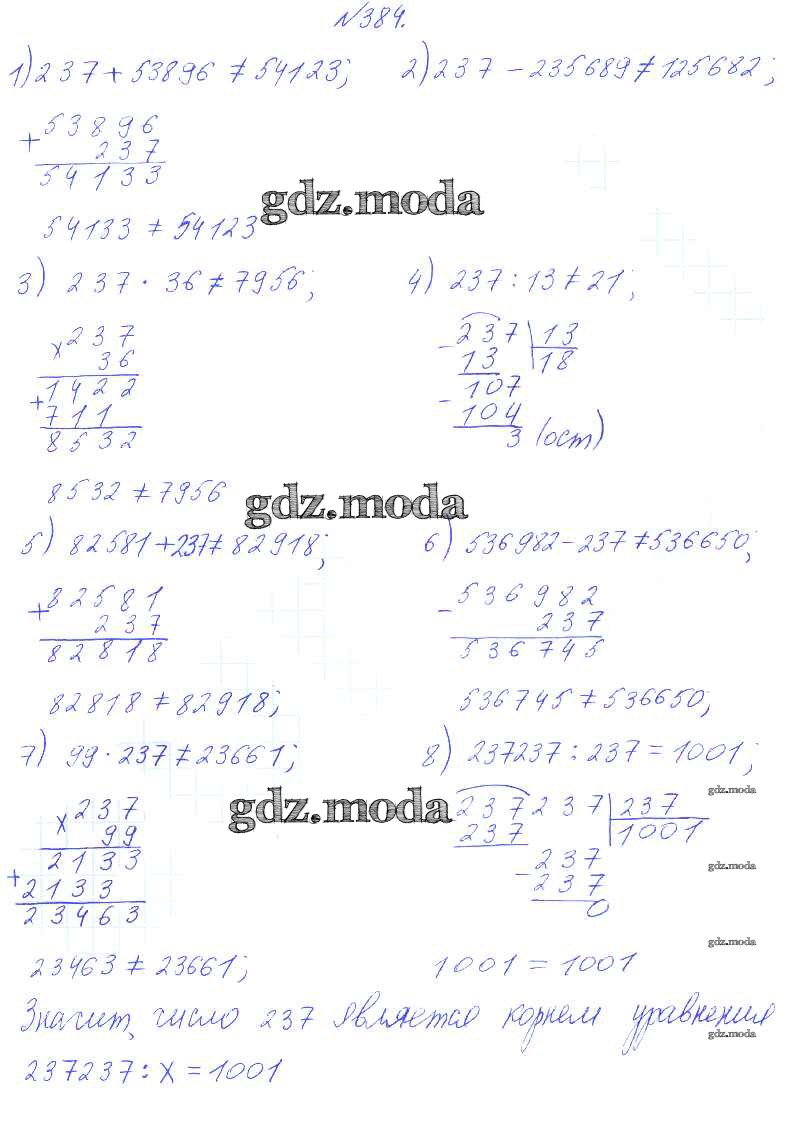 №384.
1) 237 + 53896 ≠ 54123; 2) 237 - 235689 ≠ 125682;
+ 53896
237
54133
gdz.moda
54133 ≠ 54123
3) 237 · 36 ≠ 7956; 4) 237 : 13 ≠ 21;
x 237
36
+ 1422
711
8532
- 237 | 13
13 | 18
- 107
104
3 (ост)
8532 ≠ 7956
gdz.moda
5) 82581 + 237 ≠ 82918; 6) 536982 - 237 ≠ 536650;
+ 82581
237
82818
- 536982
237
536745
82818 ≠ 82918; 536745 ≠ 536650;
7) 99 · 237 ≠ 23661; 8) 237237 : 237 = 1001;
gdz.moda
gdz.moda
x 237
99
+ 2133
2133
23463
237237 | 237
237 | 1001
- 237
237
0
gdz.moda
gdz.moda
23463 ≠ 23661; 1001 = 1001
Значит, число 237 является корнем уравнения
gdz.moda
237237 : x = 1001